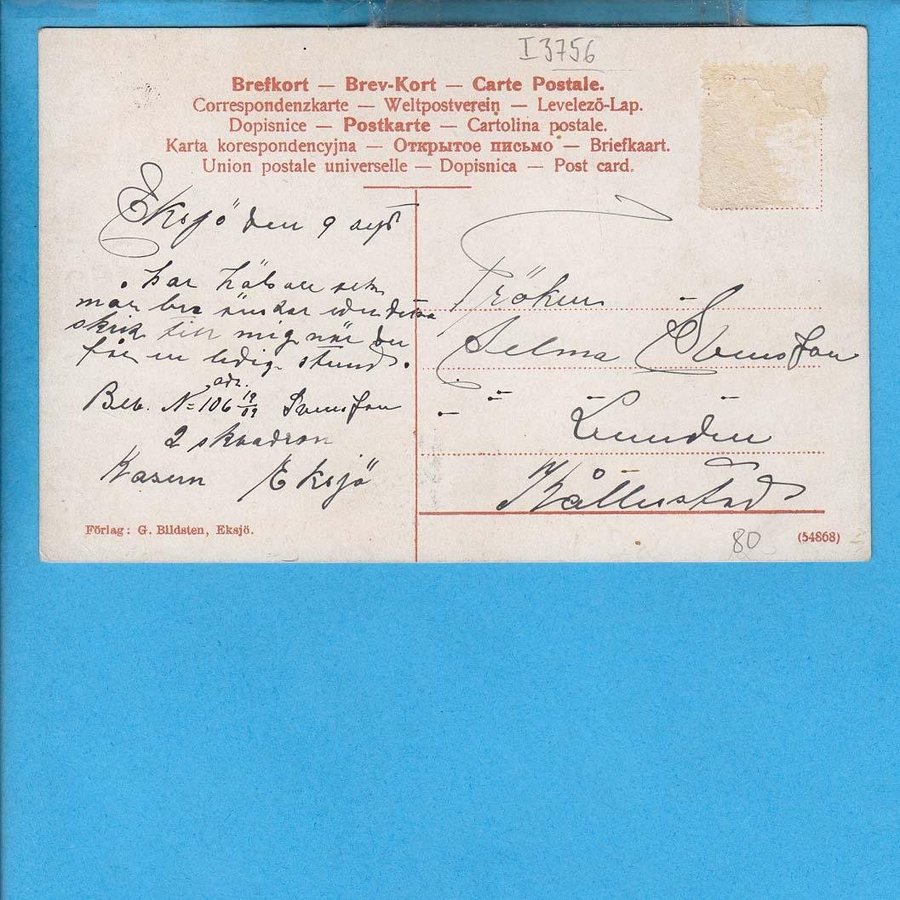 I 3756
Brefkort — Brev-Kort — Carte Postale.
Correspondenzkarte — Weltpostverein — Levelező-Lap.
Dopisnice — Postkarte — Cartolina postale.
Karta korespondencyjna — Открытое письмо — Briefkaart.
Union postale universelle — Dopisnica — Post card.
Eksjö den 9
har hälsan
mår bra önskar
skrif till mig när du
får en ledig stund.
adr.
Bev. No 106 19/09 Svensson
2 skvadron
Kasern Eksjö
Förlag: G. Bildsten, Eksjö.
Fröken
Selma Svensson
Källestad
80
(54868)